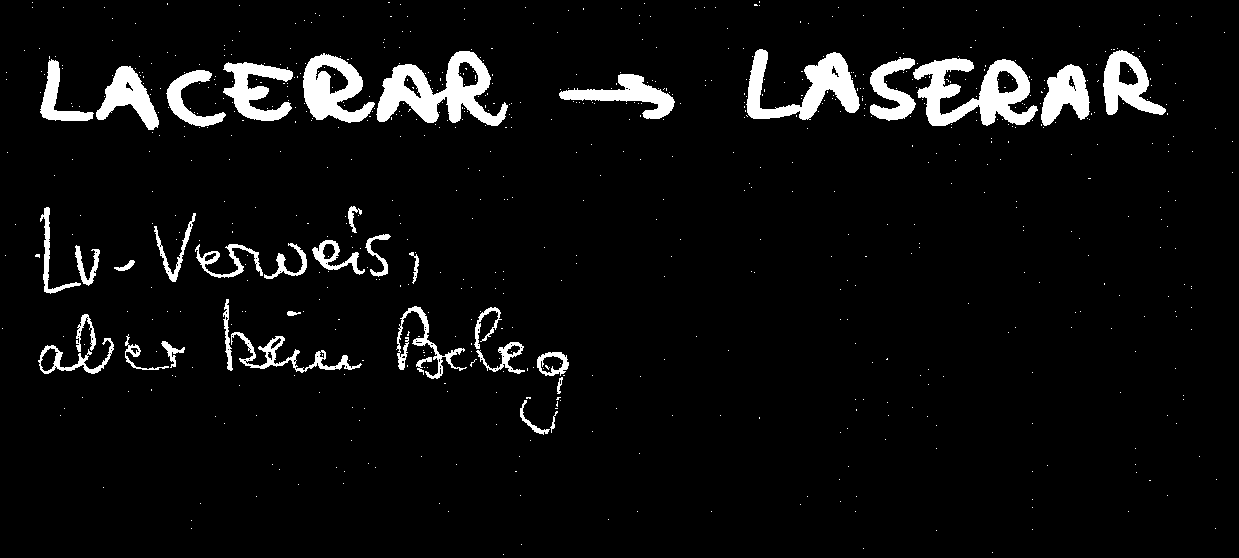 LACERAR → LASERAR
Lv-Verweis,
aber kein Beleg